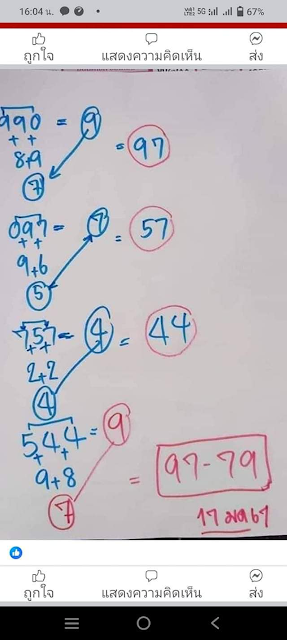 16:04 น. 5G 67%
ถูกใจ แสดงความคิดเห็น ส่ง
990 = 9
+ +
8+9 = 97
7
097 = 7
+ +
9+6 = 57
5
757 = 4
+ +
2+2 = 44
4
544 = 9
+ +
9+8 = 97-79
7
17 มค 67
ถูกใจ แสดงความคิดเห็น ส่ง